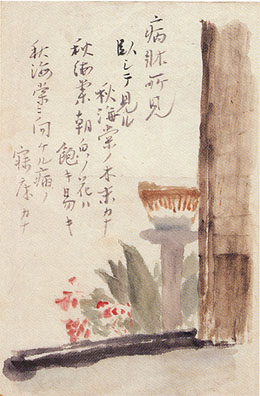 病牀所見
臥シテ見ル
秋海棠ノ木末カナ
秋海棠朝皃ノ花ハ
飽キ易キ
秋海棠ニ向ケル病ノ
寐床カナ